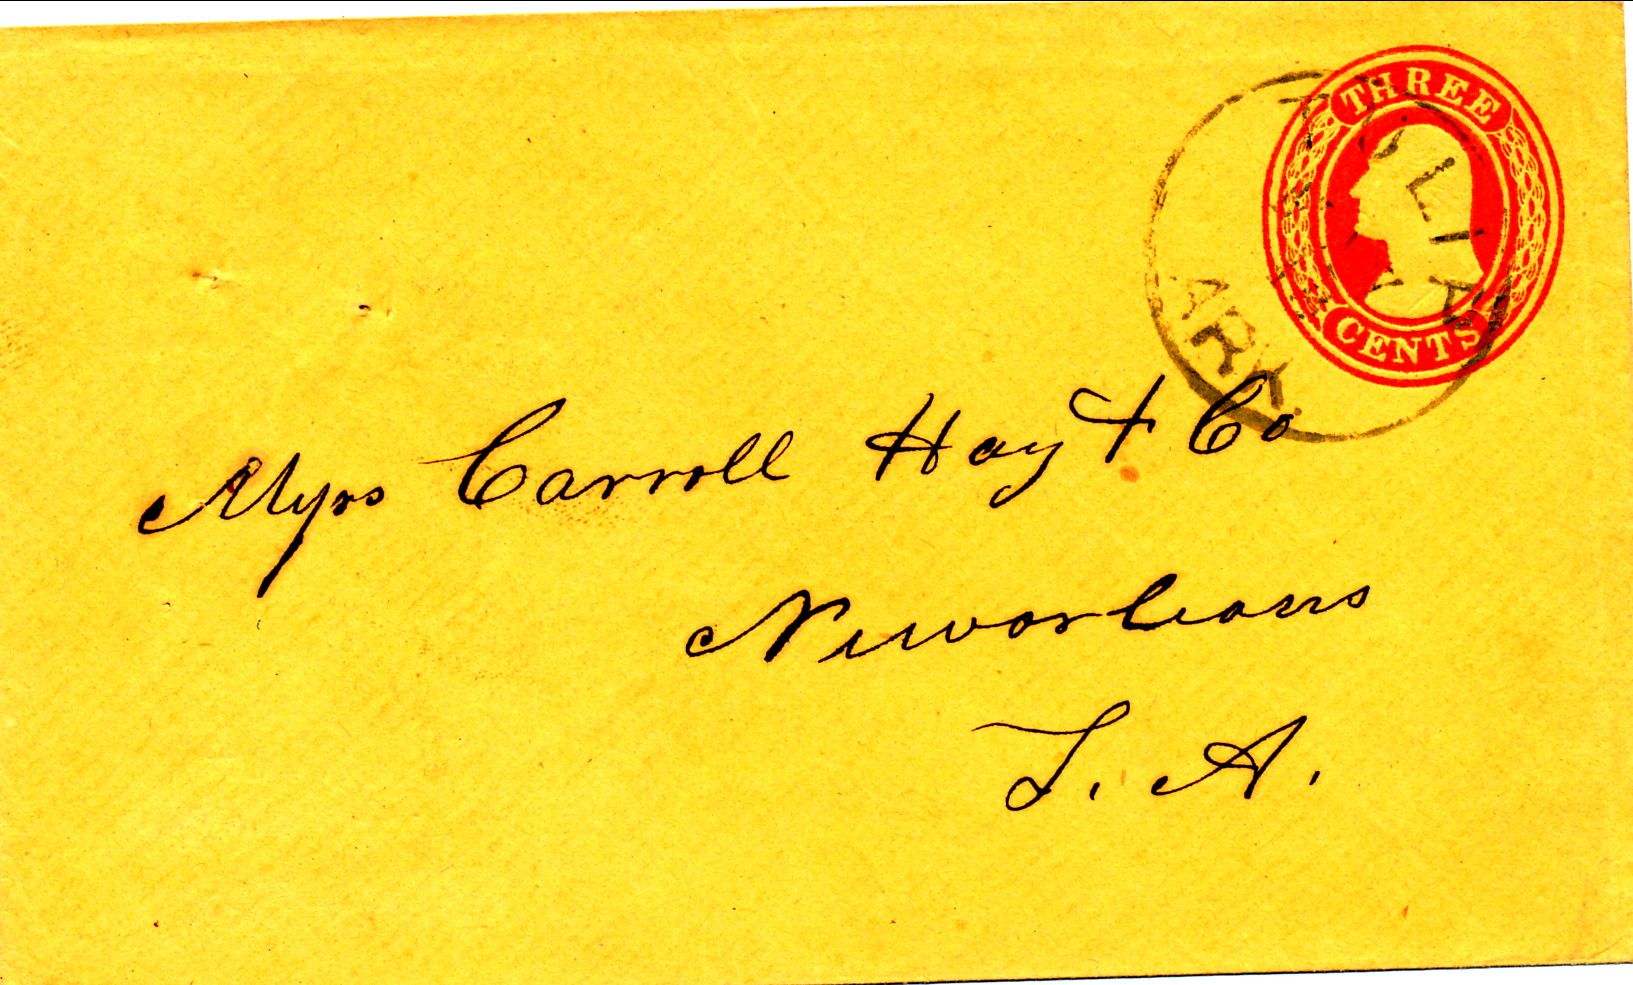 THREE
CENTS
ARK.
Messrs Carroll Hoy & Co
Neworleans
L. A.